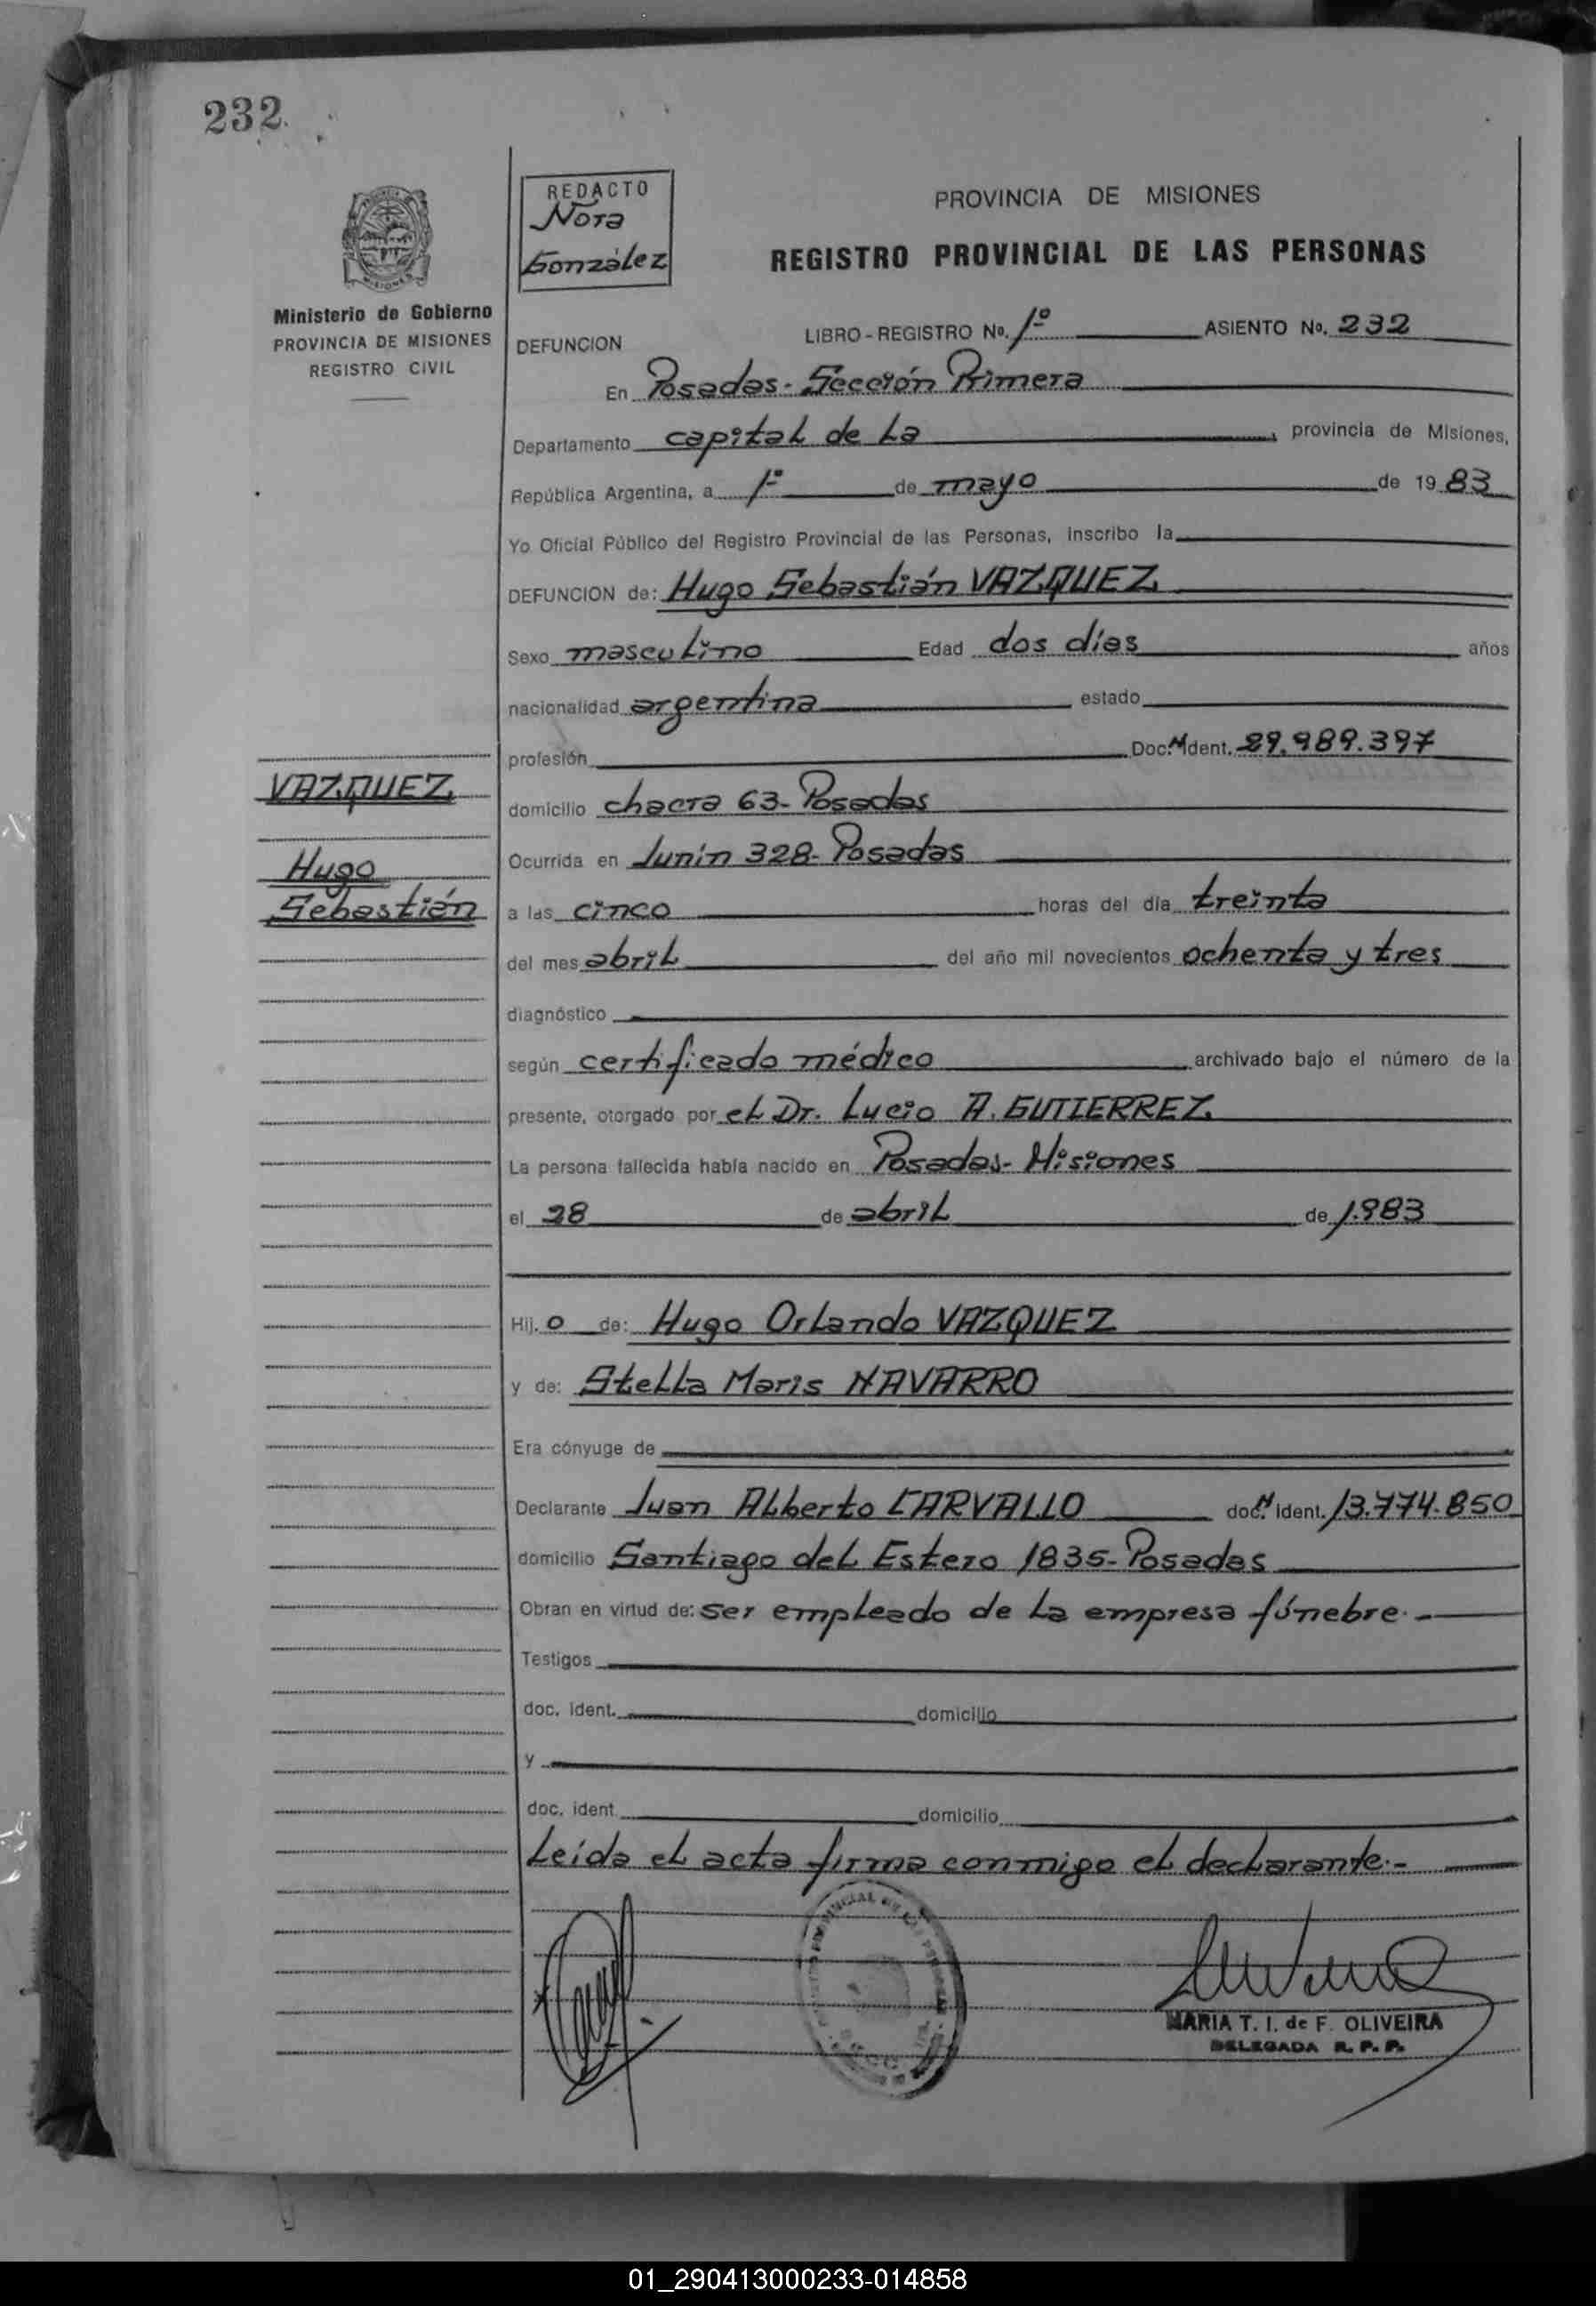 232
REDACTO
Nora
González
PROVINCIA DE MISIONES
REGISTRO PROVINCIAL DE LAS PERSONAS
Ministerio de Gobierno
PROVINCIA DE MISIONES
REGISTRO CIVIL
DEFUNCION LIBRO-REGISTRO No. 1º ASIENTO No. 232
En Posadas- Sección Primera
Departamento capital de La , provincia de Misiones,
República Argentina, a 1º de mayo de 1983
Yo Oficial Público del Registro Provincial de las Personas, inscribo la
DEFUNCION de: Hugo Sebastián VAZQUEZ
Sexo masculino Edad dos días años
nacionalidad argentina estado
profesión Doc. N ident. 29.989.397
VAZQUEZ
Hugo
Sebastián
domicilio chacra 63- Posadas
Ocurrida en Junín 328- Posadas
a las cinco horas del día treinta
del mes abril del año mil novecientos ochenta y tres
diagnóstico
según certificado médico archivado bajo el número de la
presente, otorgado por el Dr. Lucio A. GUTIERREZ
La persona fallecida había nacido en Posadas- Misiones
el 28 de abril de 1.983
Hij. o de: Hugo Orlando VAZQUEZ
y de: Stella Maris NAVARRO
Era cónyuge de
Declarante Juan Alberto CARVALLO doc. N ident. 13.774.850
domicilio Santiago del Estero 1835- Posadas
Obran en virtud de: ser empleado de la empresa fúnebre.-
Testigos
doc. ident. domicilio
y
doc. ident domicilio
Leída el acta firma conmigo el declarante.-
MARIA T. I. de F. OLIVEIRA
DELEGADA R. P. P.
01_290413000233-014858